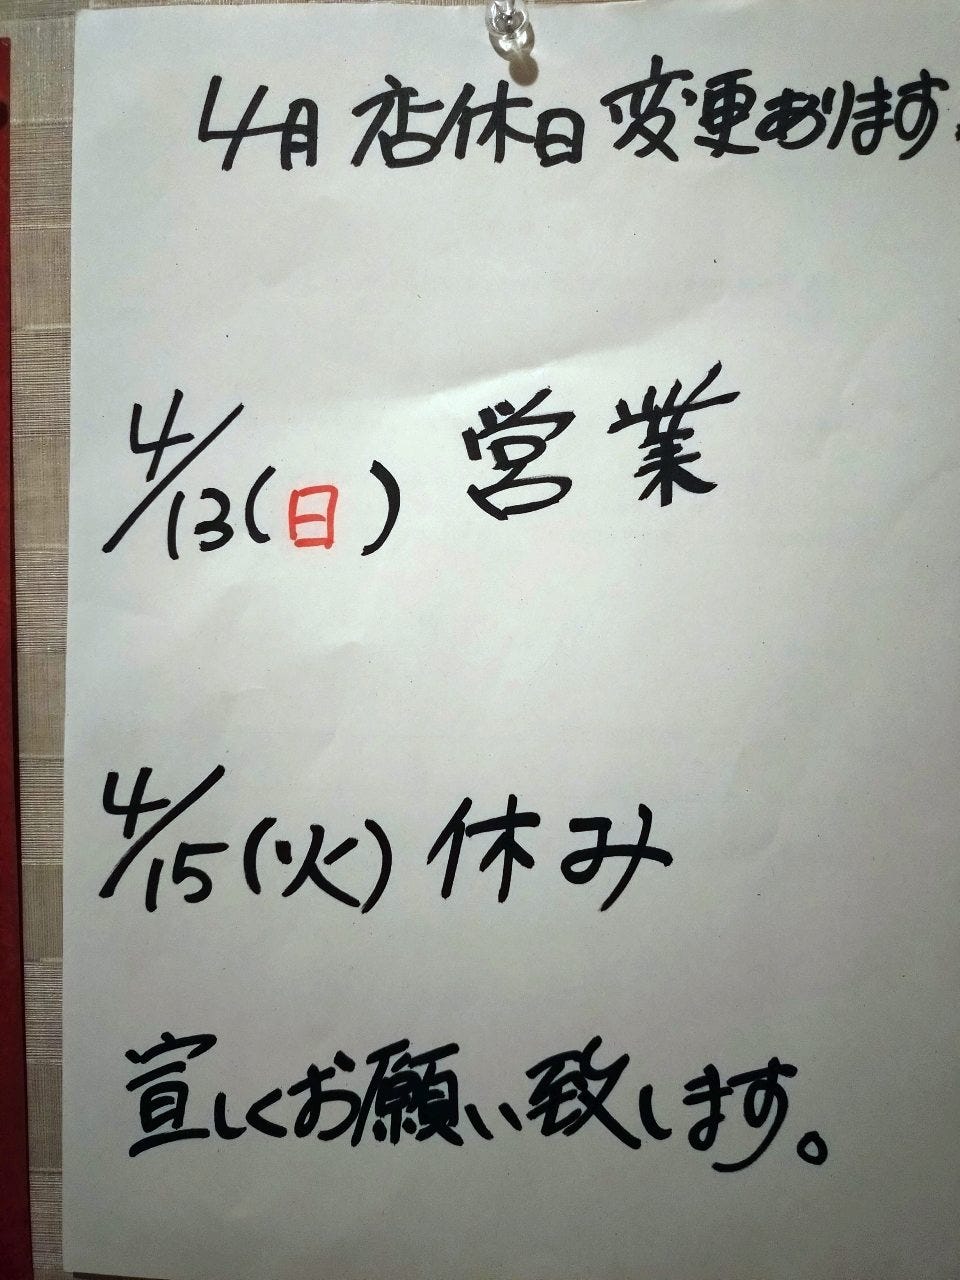 4月 店休日 変更あります。
4/13(日) 営業
4/15(火) 休み
宜しくお願い致します。